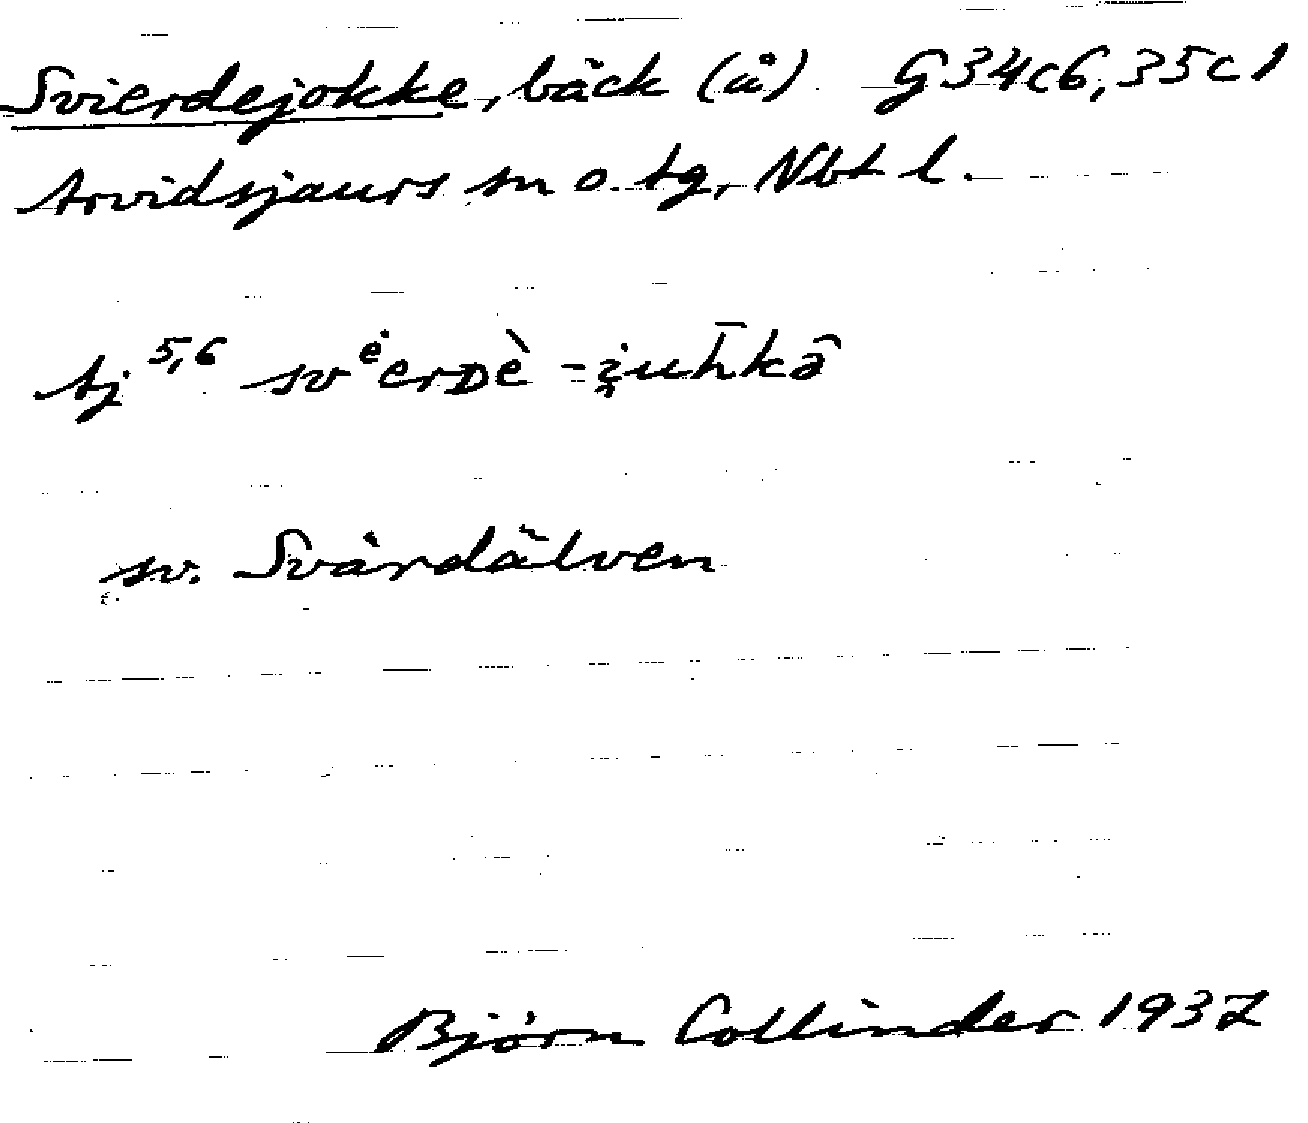 Svierdejokke, bäck (å) G34c6, 35c1
Arvidsjaurs sn o. tg, Nbt l.
tj 5,6 svėerᴅè -i̯uh̄kâ
sv. Svärdälven
Björn Collinder 1937